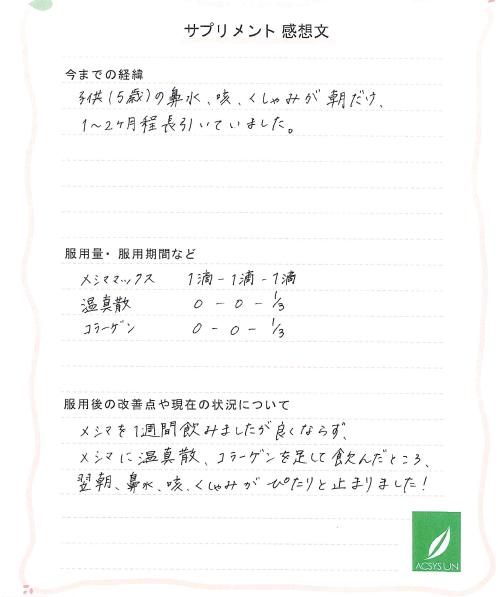 サプリメント 感想文
今までの経緯
子供(5歳)の鼻水、咳、くしゃみが朝だけ、
1〜2ヶ月程長引いていました。
服用量・服用期間など
メシママックス 1滴-1滴-1滴
温真散 0-0-1/3
コラーゲン 0-0-1/3
服用後の改善点や現在の状況について
メシマを1週間飲みましたが良くならず、
メシマに温真散、コラーゲンを足して飲んだところ、
翌朝、鼻水、咳、くしゃみがぴたりと止まりました!
ACSYSUN